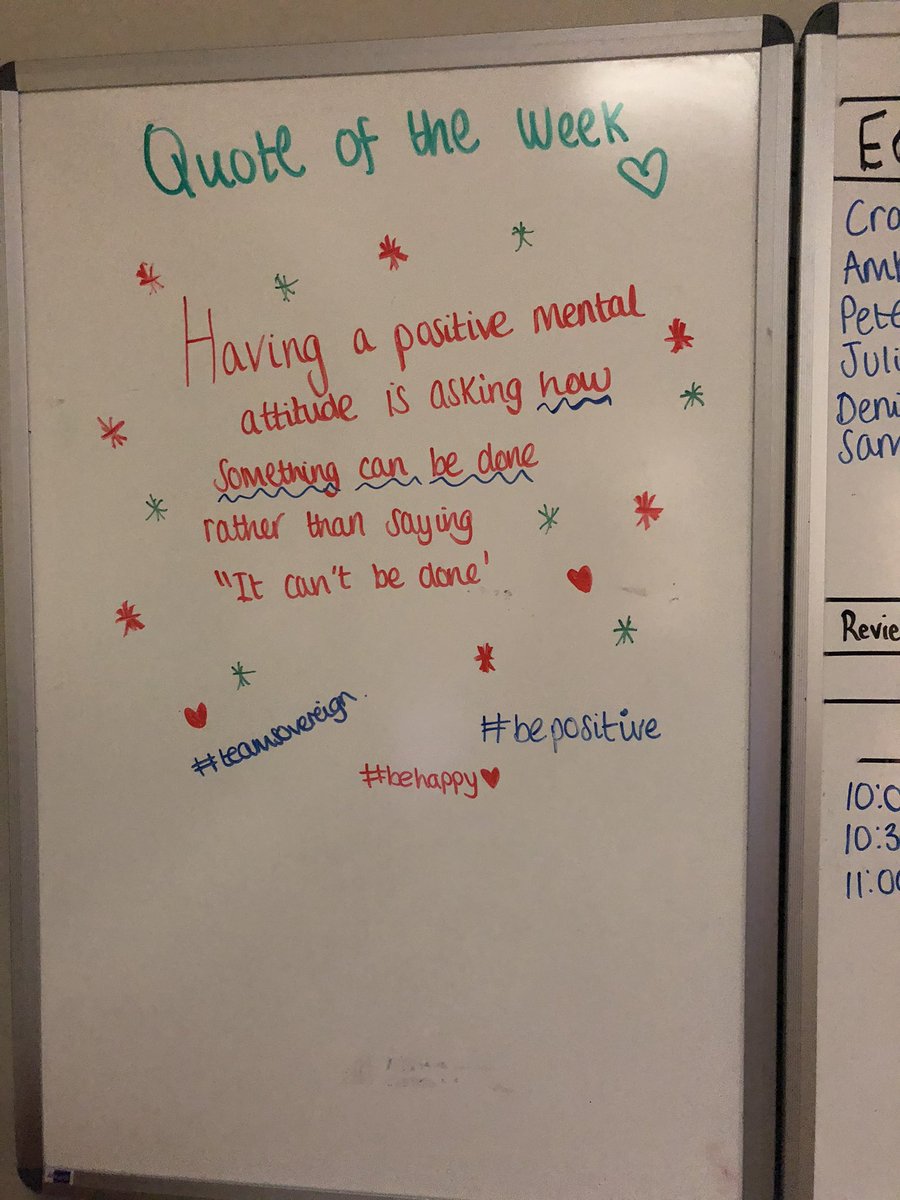 Quote of the week
Having a positive mental
attitude is asking how
something can be done
rather than saying
"It can't be done'
#teamsovereign.
#bepositive
#behappy
Cro
Pete
Juli
Deni
Sam
Revie
10:0
10:3
11:00